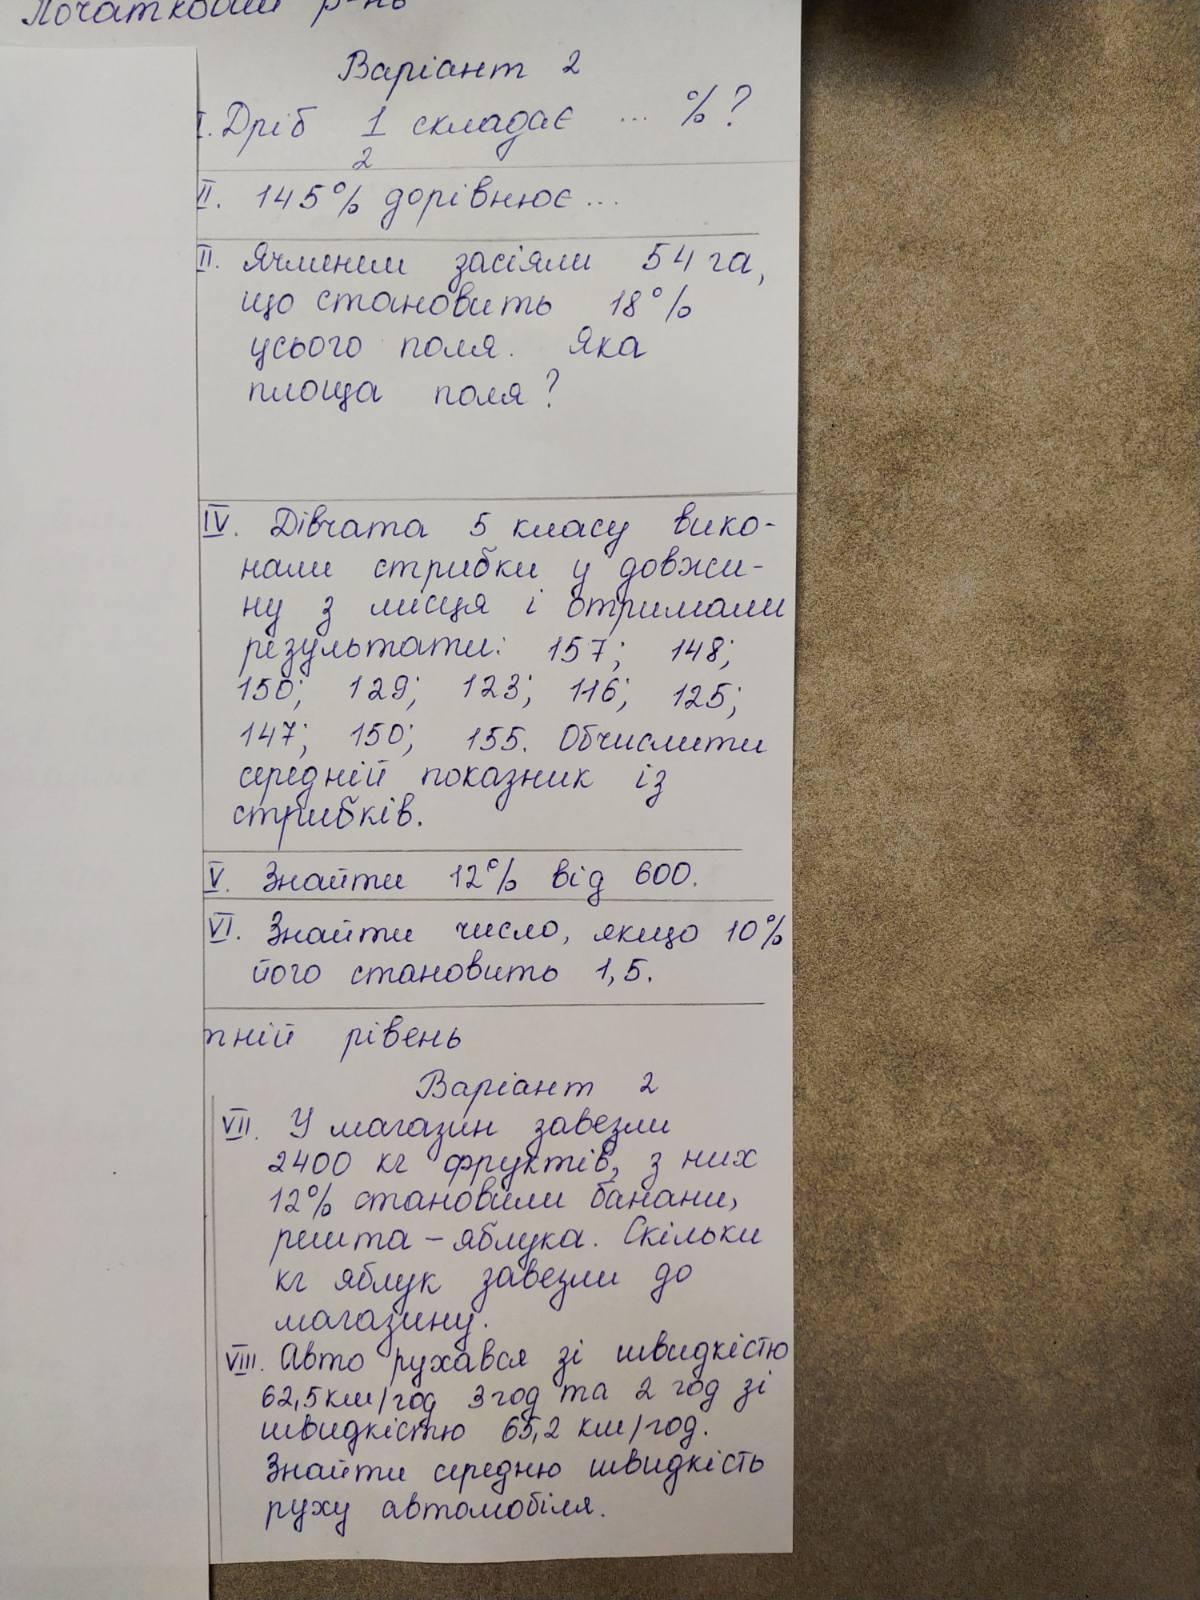 Початковий р-нь
Варіант 2
I. Дріб 1/2 складає ... %?
II. 145% дорівнює ...
II. Ячменем засіяли 54 га,
що становить 18%
усього поля. Яка
площа поля?
IV. Дівчата 5 класу вико-
нали стрибки у довжи-
ну з місця і отримали
результати: 157; 148;
150; 129; 123; 116; 125;
147; 150; 155. Обчислити
середній показник із
стрибків.
V. Знайти 12% від 600.
VI. Знайти число, якщо 10%
його становить 1,5.
тній рівень
Варіант 2
VII. У магазин завезли
2400 кг фруктів, з них
12% становили банани,
решта – яблука. Скільки
кг яблук завезли до
магазину.
VIII. Авто рухався зі швидкістю
62,5 км/год 3 год та 2 год зі
швидкістю 65,2 км/год.
Знайти середню швидкість
руху автомобіля.